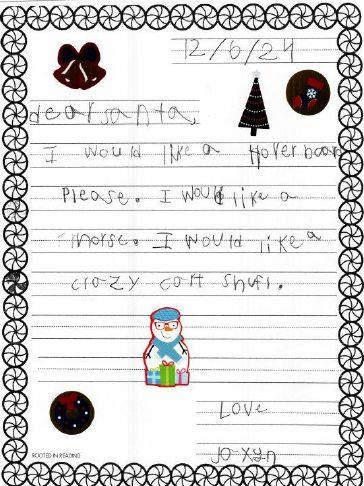 12/6/24
dear santa,
I would like a Hoverboard
Please. I would like a
horse. I would like a
crazy cart shufl.
Love
Jo-xyn
ROOTED IN READING